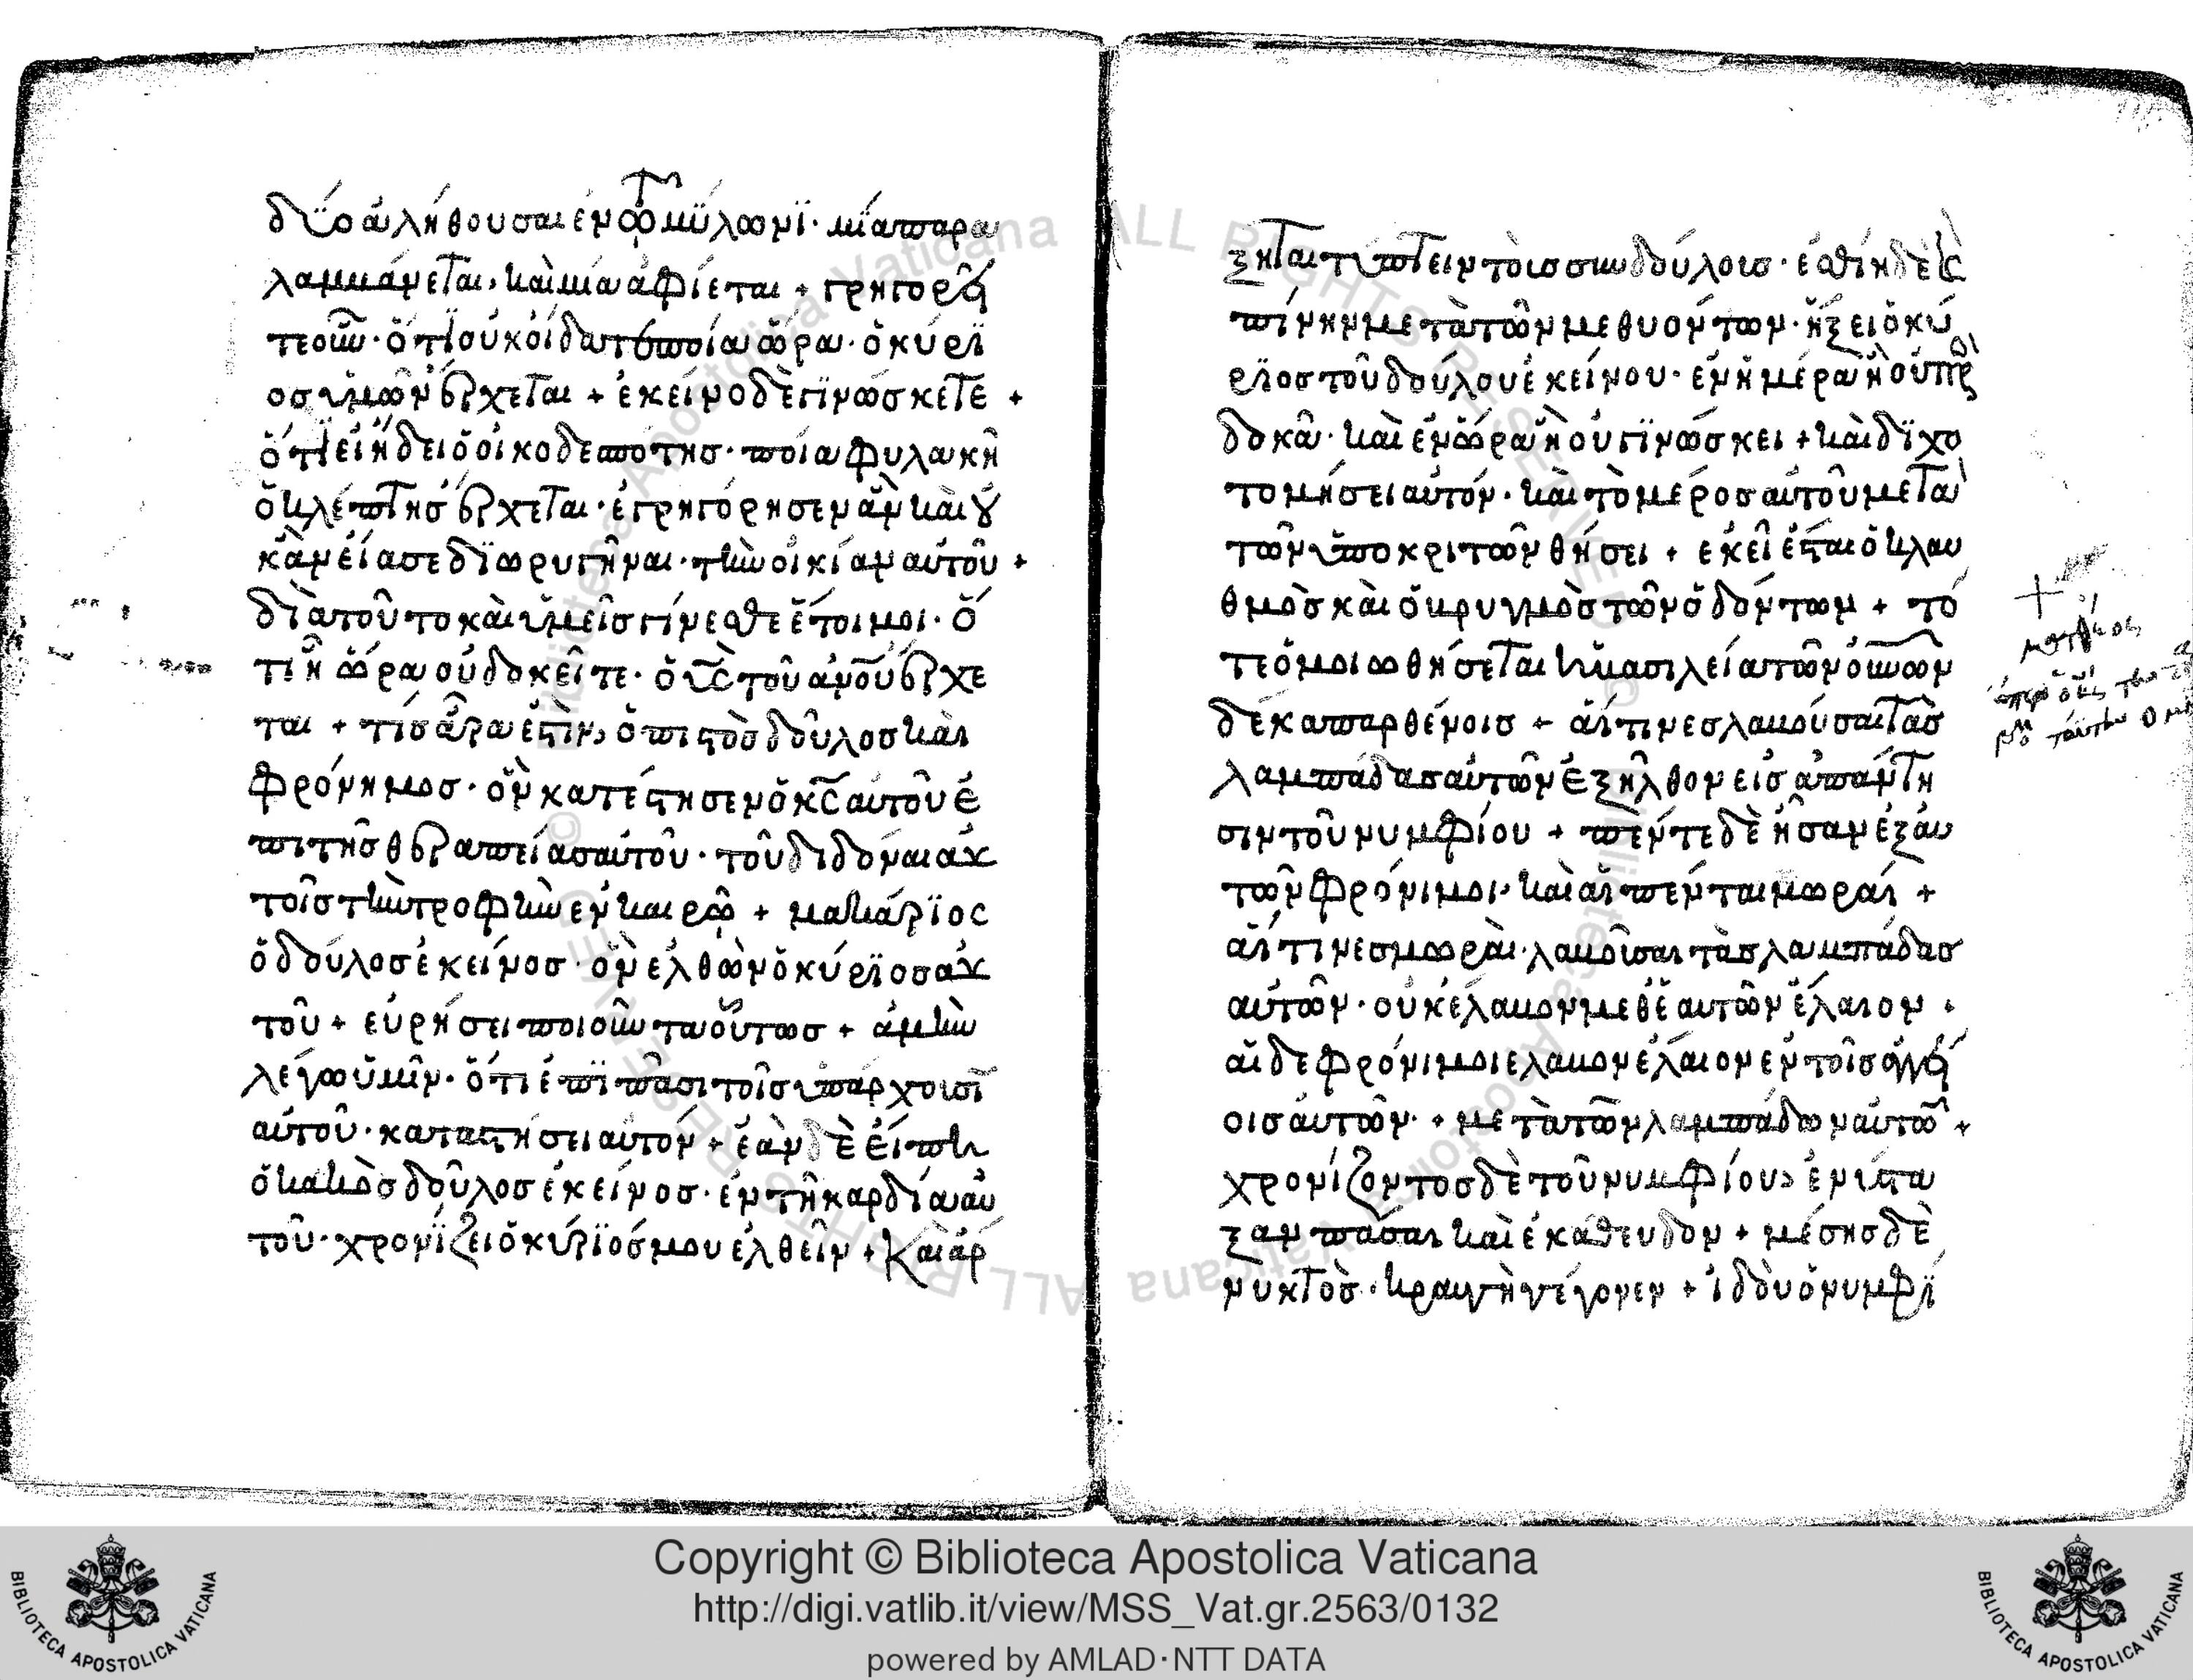 δύο ἀλήθουσαι ἐν τῶ μύλωνϊ· μία παρα
λαμβάνεται, καὶ μία ἀφίεται + γρηγορεῖ
τε οὖν· ὅτι οὐκ οἴδατε ποία ὥρα· ὁ κύρϊ
οσ ὑμῶν ἔρχεται + ἐκεῖνο δὲ γϊνώσκετε +
ὅτι εἰ ἤδει ὁ οἰκοδεσπότησ· ποία φυλακῆ
ὁ κλέπτησ ἔρχεται· ἐγρηγόρησεν ἂν καὶ οὐ
κἂν εἴασε δϊωρυγῆναι· τὴν οἰκίαν αὐτοῦ +
διὰ τοῦτο καὶ ὑμεῖσ γίνεσθε ἕτοιμοι· ὅ
τι ἧ ὥρα οὐ δοκεῖτε· ὁ υἱὸς τοῦ ἀνοῦ ἔρχε
ται + τίσ ἄρα ἐστὶν, ὁ πιστὸσ δοῦλοσ καὶ
φρόνημοσ· ὃν κατέστησεν ὁ κς αὐτοῦ ἐ
πι τῆσ θεραπείασ αὐτοῦ· τοῦ διδόναι αὐ
τοῖσ τὴν τροφὴν ἐν καιρῶ + μακάρϊος
ὁ δοῦλοσ ἐκεῖνοσ· ὃν ἐλθὼν ὁ κύρϊοσ αὐ
τοῦ + εὑρήσει ποιοῦντα οὕτωσ + ἀμὴν
λέγω ὑμῖν· ὅτι ἐπῒ πᾶσι τοῖσ ὑπάρχουσϊ
αὐτοῦ· καταστήσει αὐτόν + ἐὰν δὲ εἴπη
ὁ κακὸσ δοῦλοσ ἐκεῖνοσ· ἐν τῆ καρδία αὐ
τοῦ· χρονίζει ὁ κύρϊόσ μου ἐλθεῖν + Καὶ ἄρ
ξηται τύπτειν τοὶσ συνδούλοισ· ἐσθίη δὲ κ
πίνη μετὰ τῶν μεθυόντων· ἥξει ὁ κύ
ρϊοσ τοῦ δούλου ἐκείνου· ἐν ἡμέρα ἧ οὐ προσ
δοκᾶ· καὶ ἐν ὥρα ἧ οὐ γϊνώσκει + καὶ δϊχο
τομήσει αὐτόν· καὶ τὸ μέροσ αὐτοῦ μετὰ
τῶν ὑποκριτῶν θήσει + ἐκεῖ ἔσται ὁ κλαυ
θμὸσ καὶ ὁ βρυγμὸσ τῶν ὀδόντων + τό
τε ὁμοιωθήσεται ἡ βασιλεία τῶν ὀυνῶν
δέκα παρθένοισ + αἵτινεσ λαβοῦσαι τὰσ
λαμπάδασ αὐτῶν ἐξῆλθον εἰσ ἀπάντη
σιν τοῦ νυμφίου + πέντε δὲ ἦσαν ἐξ αὐ
τῶν φρόνιμοι· καὶ αἱ πένται μωραί +
αἵτινεσ μωραὶ· λαβοῦσαι τὰσ λαμπάδασ
αὐτῶν· οὐκ έλαβον μεθ ἑαυτῶν ἔλαιον +
αἱ δε φρόνιμοι ελαβον έλαιον ἐν τοῖσ ἀγγεί
οισ αὐτῶν· + μετὰ τῶν λαμπάδων αὐτῶ +
χρονίζοντοσ δὲ τοῦ νυμφίου, ἐνίστα
ξαν πᾶσαι καὶ ἐκάθευδον + μέσησ δὲ
νυκτὸσ· κραυγὴ γέγονεν + ἰδοὺ ὁ νυμφῒ